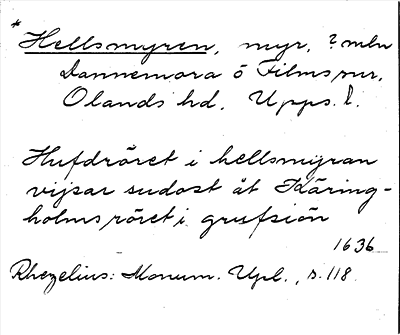 * Hellsmyren, myr, ? mln
Dannemora o Films snr,
Olands hd, Upps. l.
Hufdröret i hellsmyran
vijsar sudost åt Käring-
holmsröret i grufsiön
1636
Rhezelius: Monum. Upl., s. 118